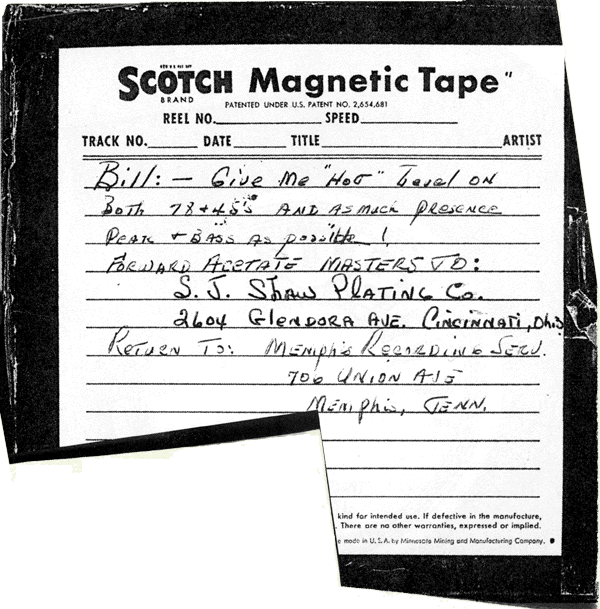 SCOTCH Magnetic Tape"
BRAND
PATENTED UNDER U.S. PATENT NO. 2,654,681
REEL NO. SPEED
TRACK NO. DATE TITLE ARTIST
Bill: - Give Me "Hot" Level on
Both 78 + 45s AND AS MUCH PRESENCE
PEAK + BASS AS possible!
FORWARD ACETATE MASTERS TO:
S. J. SHAW PLATING Co.
2604 GLENDORA AVE. CINCINNATI, Ohio
RETURN TO: MEMPHIS RECORDING SERV.
706 UNION AVE
MEMPHIS, TENN.
kind for intended use. If defective in the manufacture,
. There are no other warranties, expressed or implied.
e made in U.S.A. by Minnesota Mining and Manufacturing Company.